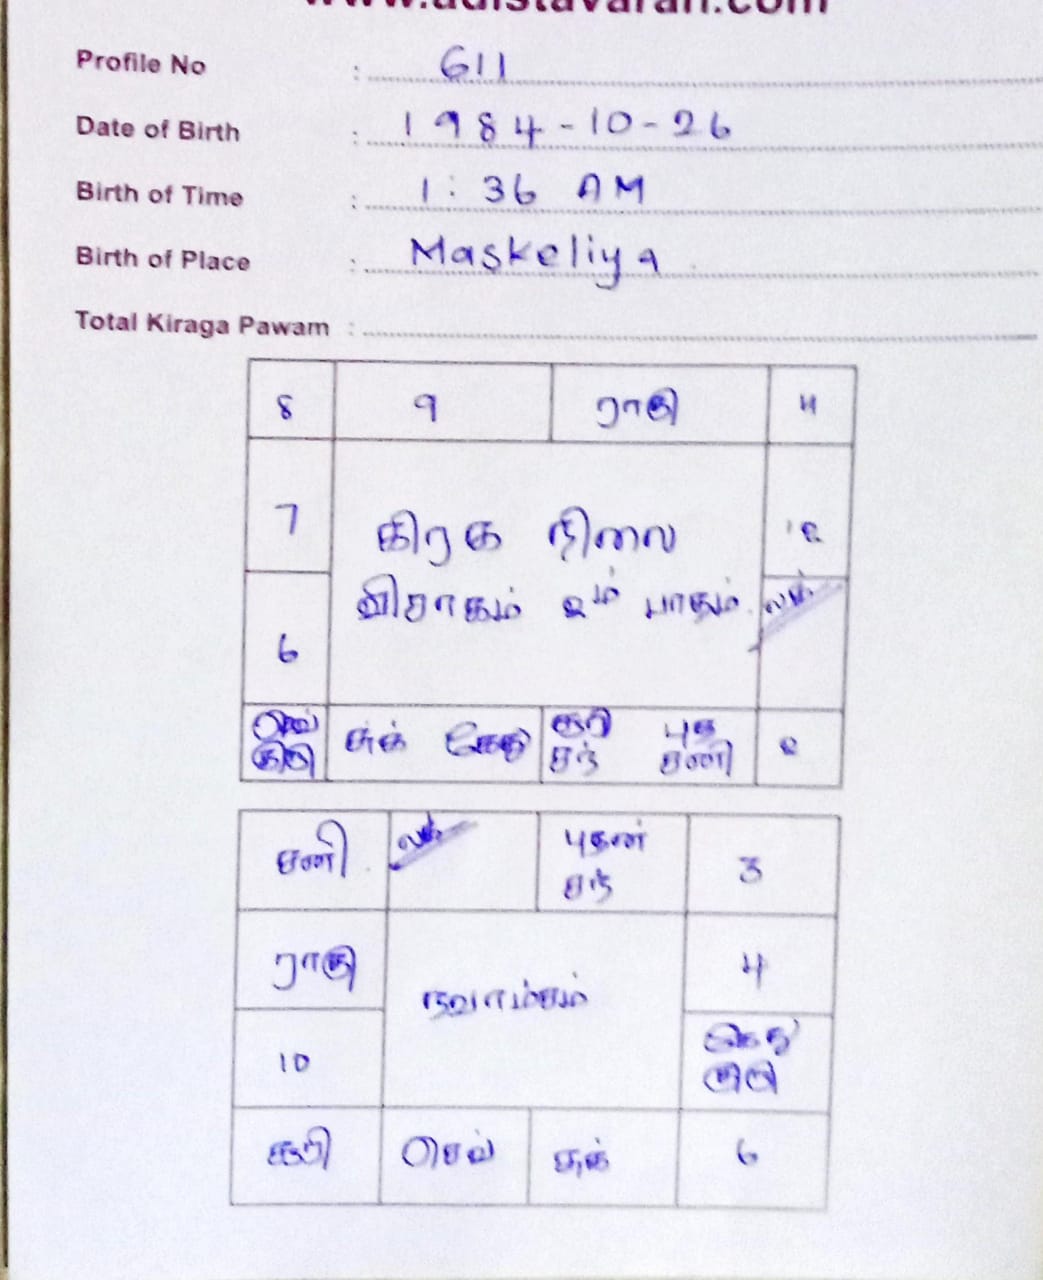 www.adistavaran.com
Profile No : 611
Date of Birth : 1984-10-26
Birth of Time : 1:36 AM
Birth of Place : Maskeliya
Total Kiraga Pawam :
8 9 ராகு 11
7 கிரக நிலை 12
விசாகம் 2ம் பாதம். லக்
6
செவ் குரு சுக் கேது சூரி புத சந் சனி 2
சனி லக் புதன் சந் 3
ராகு நவாம்சம் 4
10 கேது குரு
சூரி செவ் சுக் 6